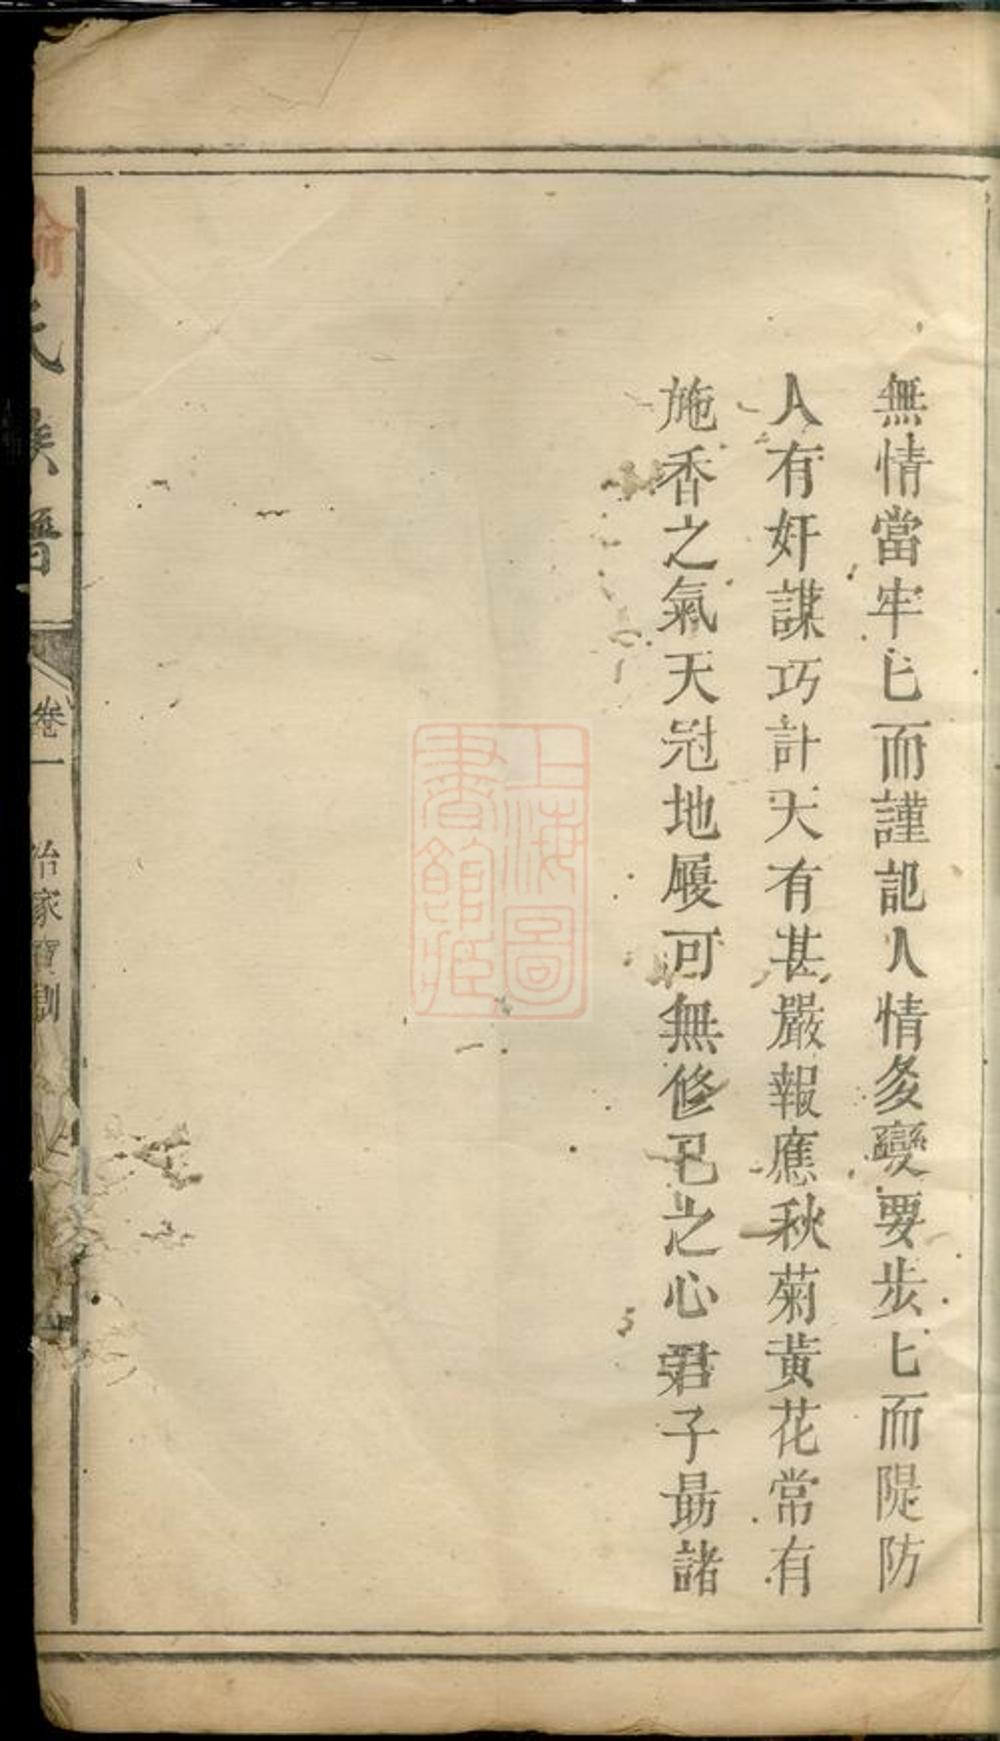 無情當牢匕而謹記人情多變要步匕而隄防
人有奸謀巧計天有甚嚴報應秋菊黃花常有
施香之氣天冠地履可無修己之心君子勗諸
氏族譜
卷一
治家寶訓
上海圖
書館藏